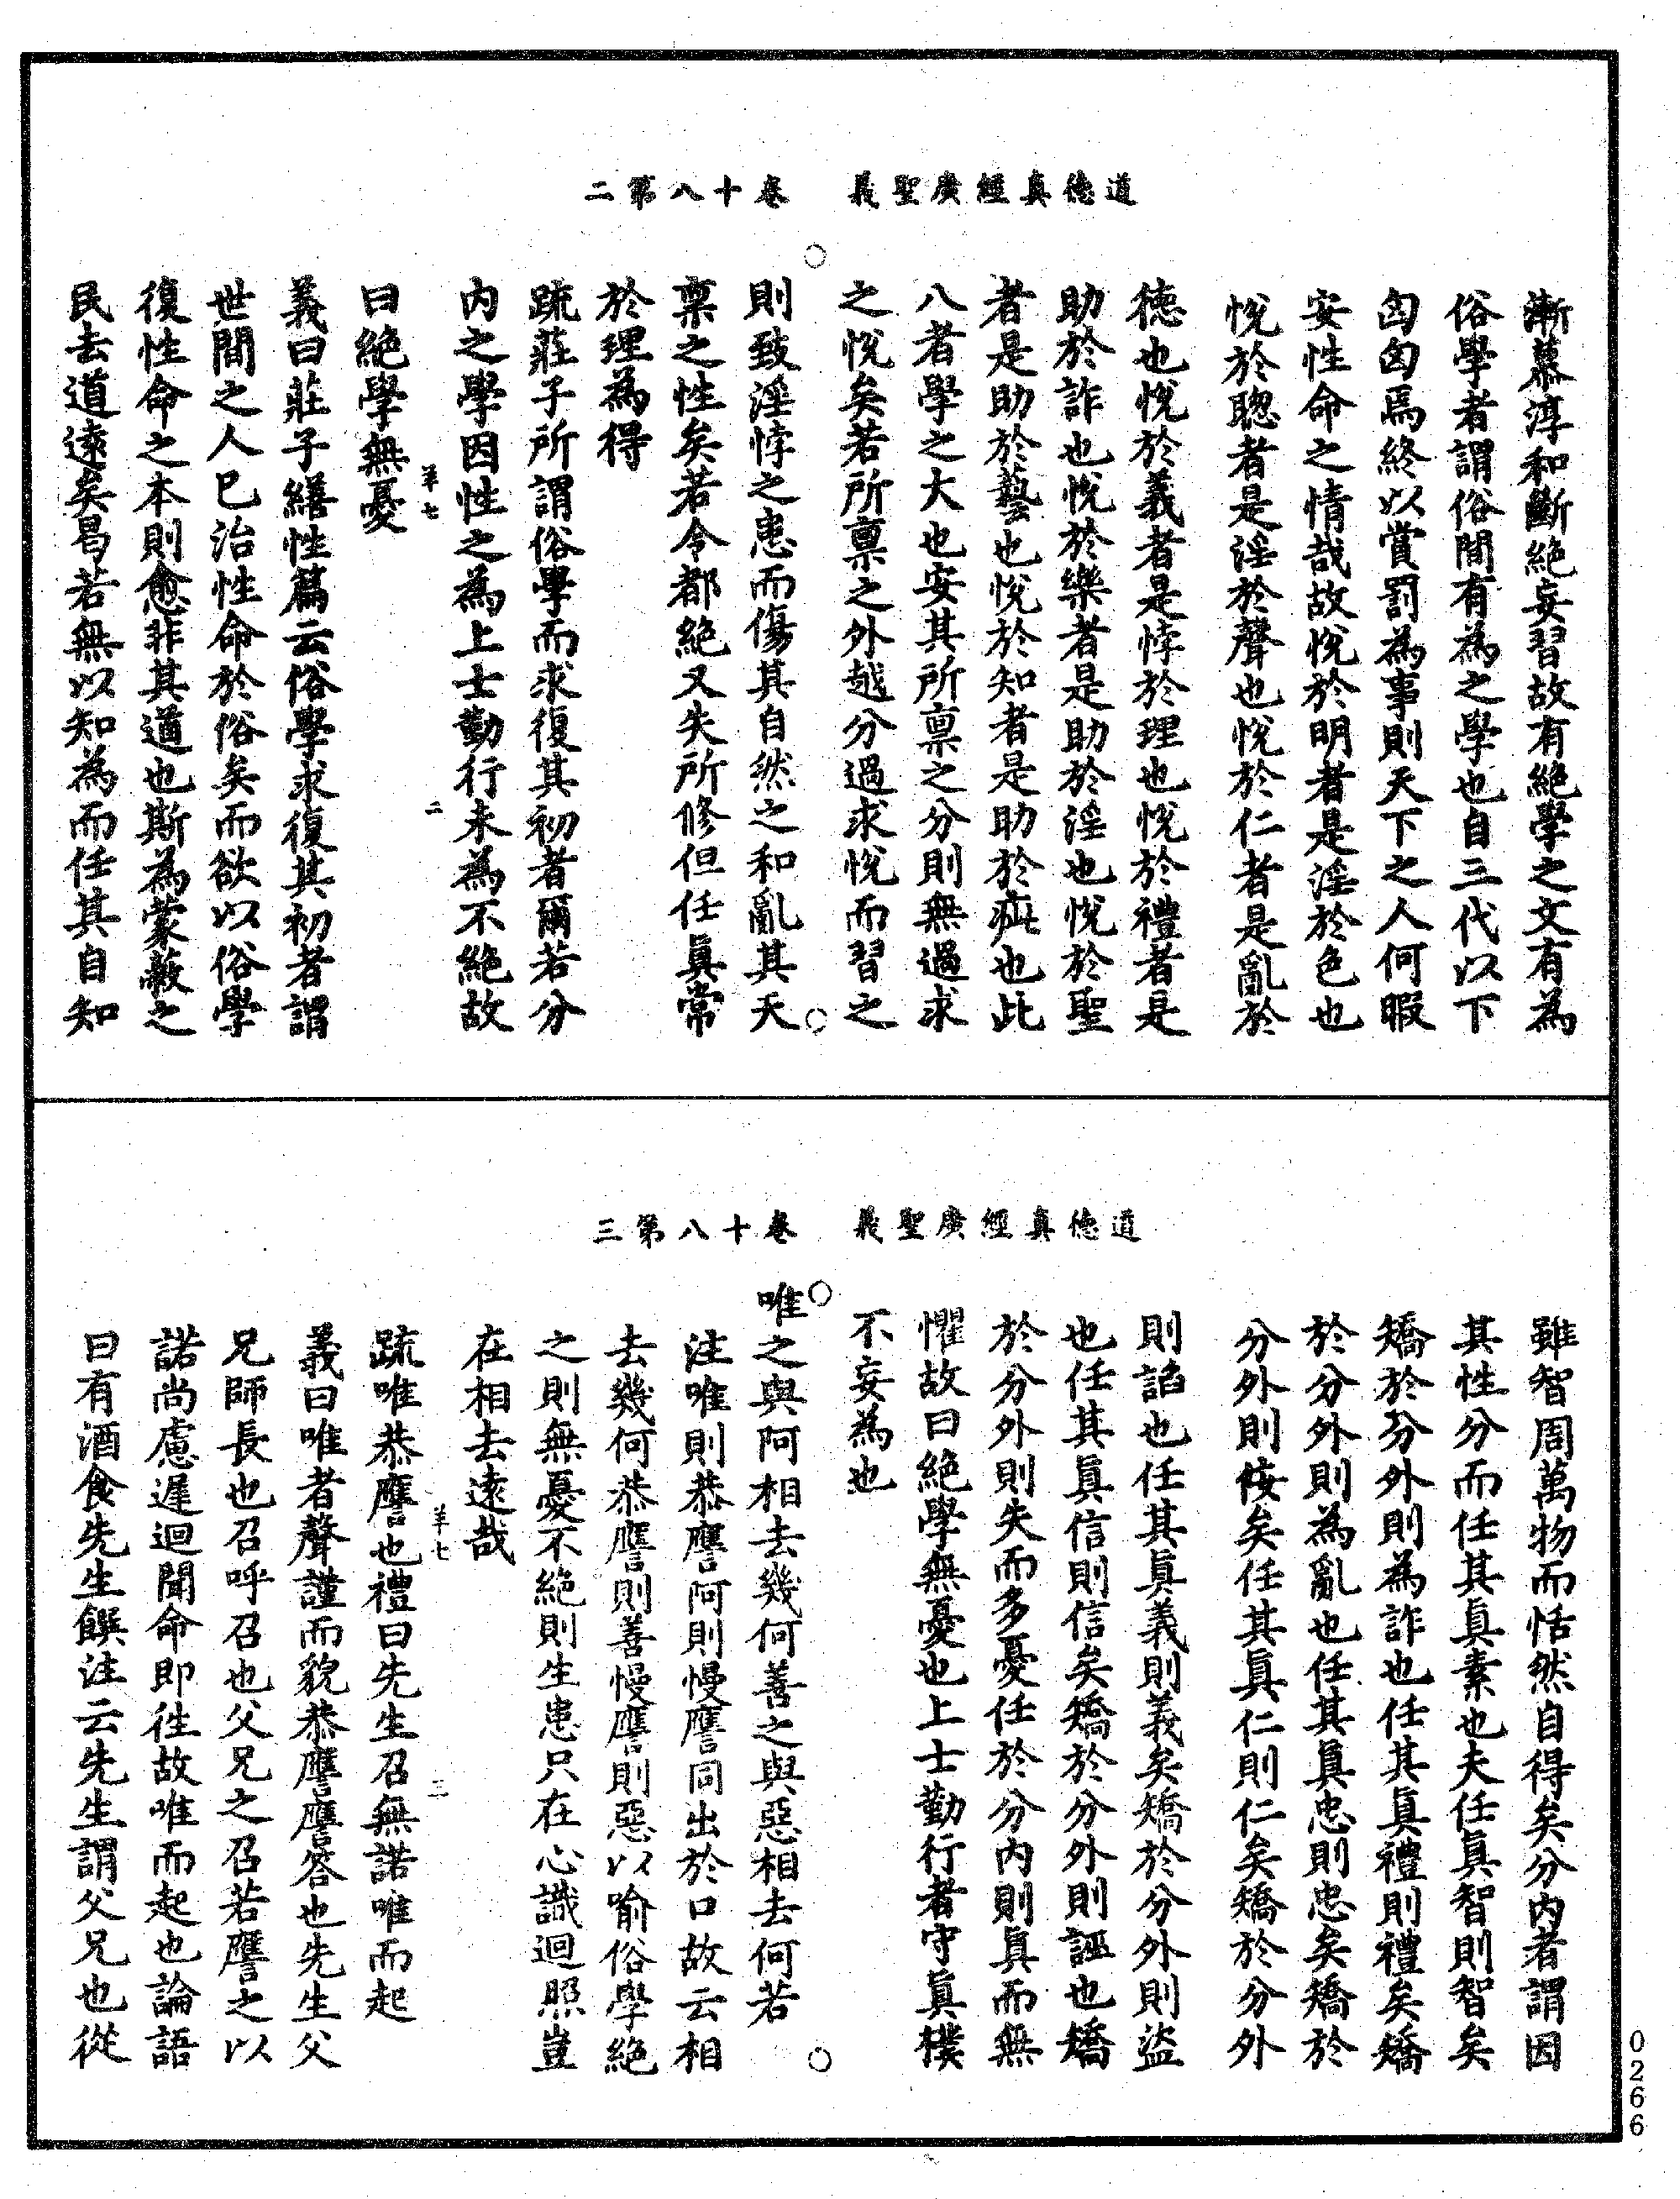 道德真經廣聖義　卷十八第二
漸慕淳和斷絕妄習故有絕學之文有為
俗學者謂俗間有為之學也自三代以下
匈匈焉終以賞罰為事則天下之人何暇
安性命之情哉故恱於明者是淫於色也
恱於聦者是淫於聲也恱於仁者是亂於
德也恱於義者是悖於理也恱於禮者是
助於詐也恱於樂者是助於淫也恱於聖
者是助於藝也恱於知者是助於疵也此
八者學之大也安其所禀之分則無過求
之恱矣若所禀之外越分過求恱而習之
則致淫悖之患而傷其自然之和亂其天
禀之性矣若令都絕又失所修但任真常
於理為得
疏莊子所謂俗學而求復其初者爾若分
內之學因性之為上士勤行未為不絕故
羊七　二
曰絕學無憂
義曰莊子繕性篇云俗學求復其初者謂
世間之人巳治性命於俗矣而欲以俗學
復性命之本則愈非其道也斯為蒙蔽之
民去道遠矣曷若無以知為而任其自知
道德真經廣聖義　卷十八第三
雖智周萬物而恬然自得矣分內者謂因
其性分而任其真素也夫任真智則智矣
矯於分外則為詐也任其真禮則禮矣矯
於分外則為亂也任其真忠則忠矣矯於
分外則佞矣任其真仁則仁矣矯於分外
則諂也任其真義則義矣矯於分外則盜
也任其真信則信矣矯於分外則誣也矯
於分外則失而多憂任於分內則真而無
懼故曰絕學無憂也上士勤行者守真樸
不妄為也
唯之與阿相去幾何善之與惡相去何若
注唯則恭譍阿則慢譍同出於口故云相
去幾何恭譍則善慢譍則惡以喻俗學絕
之則無憂不絕則生患只在心識迴照豈
在相去遠哉
羊七　三
疏唯恭譍也禮曰先生召無諾唯而起
義曰唯者聲謹而貌恭譍譍答也先生父
兄師長也召呼召也父兄之召若譍之以
諾尚慮遲迴聞命即往故唯而起也論語
曰有酒食先生饌注云先生謂父兄也從
0266